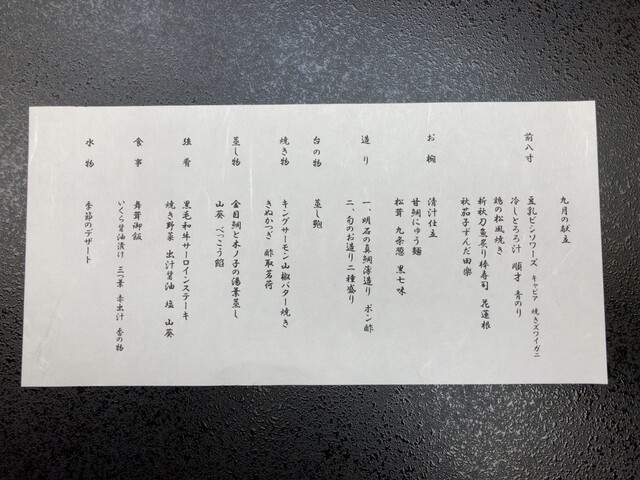 九月の献立
前八寸
豆乳ビシソワーズ キャビア 焼きズワイガニ
冷しとろろ汁 順才 青のり
鶏の松風焼き
新秋刀魚炙り棒寿司 花蓮根
秋茄子ずんだ田楽
お椀
清汁仕立
甘鯛にゅう麺
松茸 九条葱 黒七味
造り
一、明石の真鯛薄造り ポン酢
二、旬のお造り二種盛り
台の物
蒸し鮑
焼き物
キングサーモン山椒バター焼き
きぬかつぎ 酢取茗荷
蒸し物
金目鯛と木ノ子の湯葉蒸し
山葵 べっこう餡
強肴
黒毛和牛サーロインステーキ
焼き野菜 出汁醤油 塩 山葵
食事
舞茸御飯
いくら醤油漬け 三つ葉 赤出汁 香の物
水物
季節のデザート